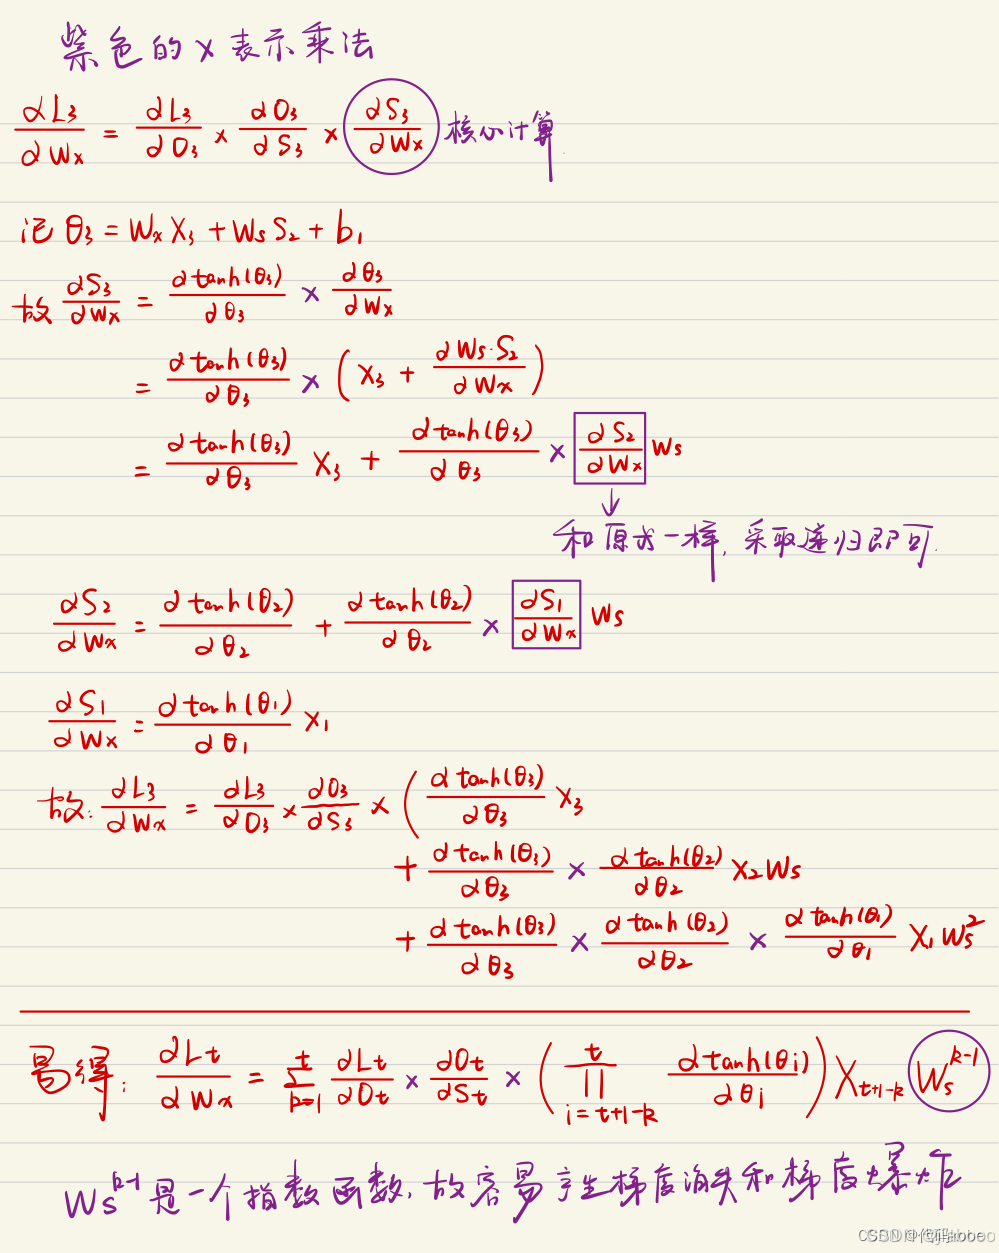 紫色的 × 表示乘法
∂L₃/∂Wx = ∂L₃/∂O₃ × ∂O₃/∂S₃ × ∂S₃/∂Wx 核心计算
记 θ₃ = Wx X₃ + Ws S₂ + b₁
故 ∂S₃/∂Wx = ∂tanh(θ₃)/∂θ₃ × ∂θ₃/∂Wx
= ∂tanh(θ₃)/∂θ₃ × (X₃ + ∂Ws·S₂/∂Wx)
= ∂tanh(θ₃)/∂θ₃ X₃ + ∂tanh(θ₃)/∂θ₃ × ∂S₂/∂Wx Ws
↓
和原式一样, 采取递归即可.
∂S₂/∂Wx = ∂tanh(θ₂)/∂θ₂ + ∂tanh(θ₂)/∂θ₂ × ∂S₁/∂Wx Ws
∂S₁/∂Wx = ∂tanh(θ₁)/∂θ₁ X₁
故: ∂L₃/∂Wx = ∂L₃/∂O₃ × ∂O₃/∂S₃ × (∂tanh(θ₃)/∂θ₃ X₃
+ ∂tanh(θ₃)/∂θ₃ × ∂tanh(θ₂)/∂θ₂ X₂Ws
+ ∂tanh(θ₃)/∂θ₃ × ∂tanh(θ₂)/∂θ₂ × ∂tanh(θ₁)/∂θ₁ X₁Ws²
易得: ∂Lt/∂Wx = Σ_{k=1}^{t} ∂Lt/∂Ot × ∂Ot/∂St × (∏_{i=t+1-k}^{t} ∂tanh(θi)/∂θi) X_{t+1-k} Ws^{k-1}
Ws^{k-1} 是一个指数函数, 故容易产生梯度消失和梯度爆炸